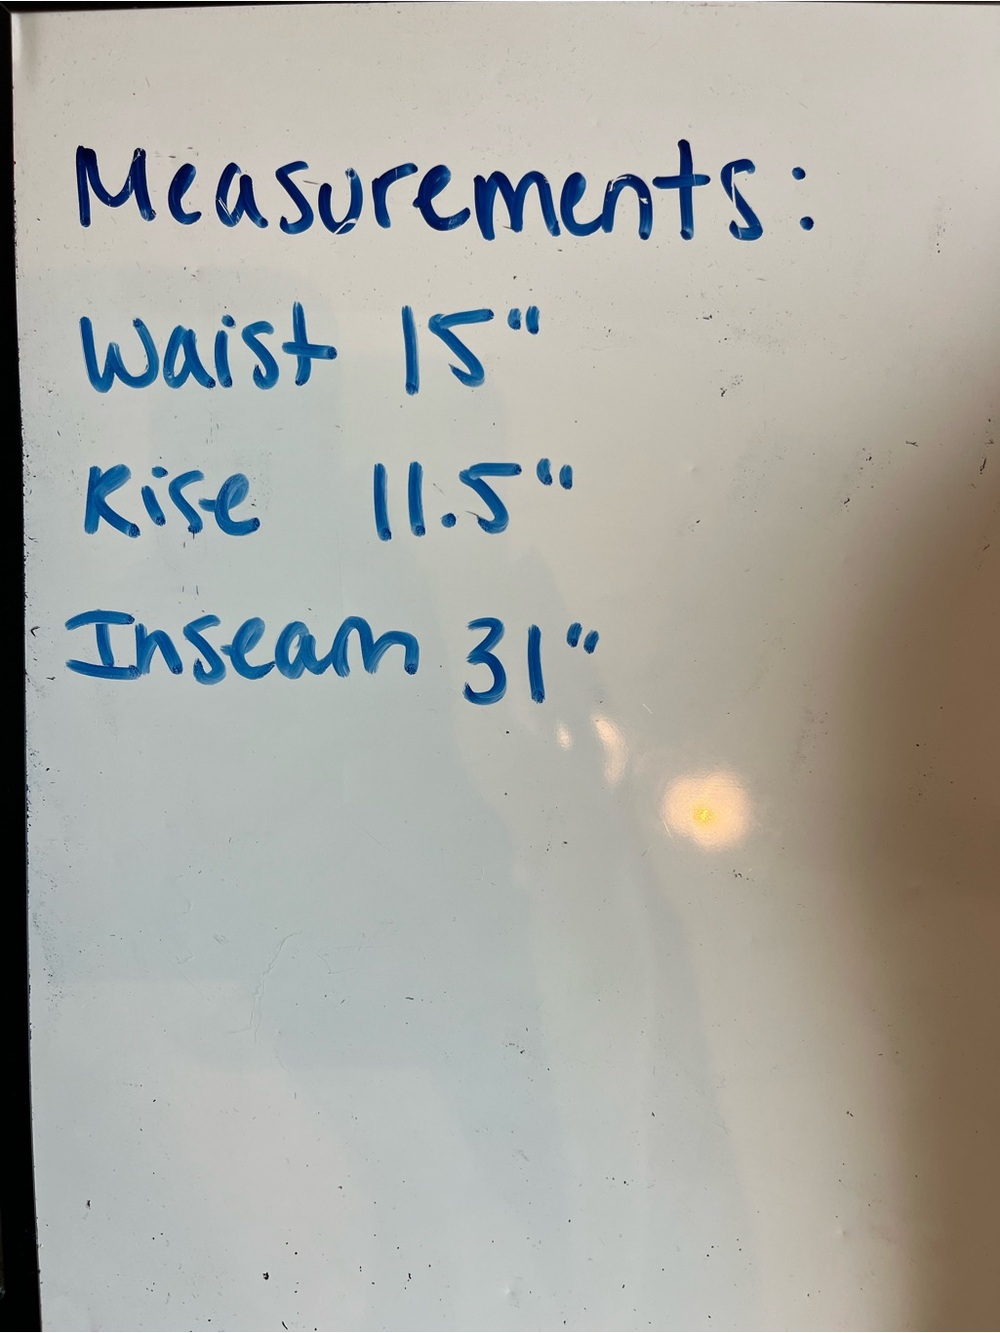 Measurements:
Waist 15"
Rise 11.5"
Inseam 31"